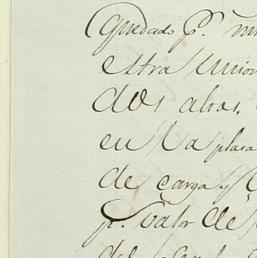 Quedado p.r
estra union
dos años.
en la plasa
de carga y
p.r valor de
del